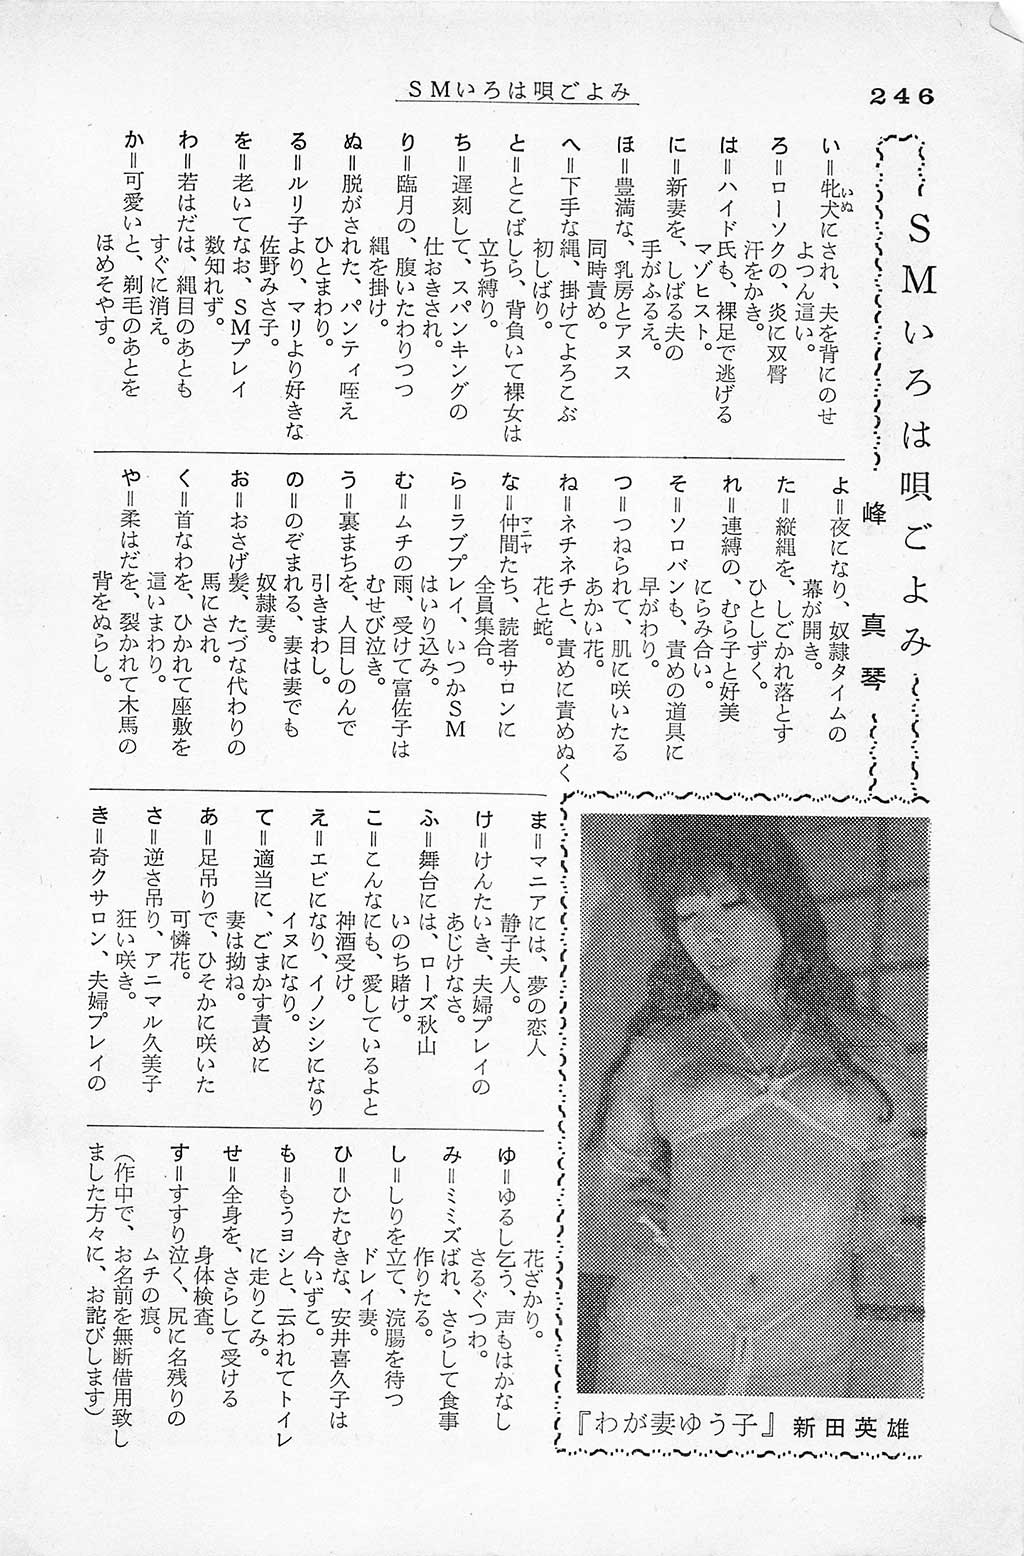 246
SMいろは唄ごよみ
SMいろは唄ごよみ
峰 真琴
い=牝犬にされ、夫を背にのせ
いぬ
よつん這い。
ろ=ローソクの、炎に双臀
汗をかき。
は=ハイド氏も、裸足で逃げる
マゾヒスト。
に=新妻を、しばる夫の
手がふるえ。
ほ=豊満な、乳房とアヌス
同時責め。
へ=下手な縄、掛けてよろこぶ
初しばり。
と=とこばしら、背負いて裸女は
立ち縛り。
ち=遅刻して、スパンキングの
仕おきされ。
り=臨月の、腹いたわりつつ
縄を掛け。
ぬ=脱がされた、パンティ咥え
ひとまわり。
る=ルリ子より、マリより好きな
佐野みさ子。
を=老いてなお、SMプレイ
数知れず。
わ=若はだは、縄目のあとも
すぐに消え。
か=可愛いと、剃毛のあとを
ほめそやす。
よ=夜になり、奴隷タイムの
幕が開き。
た=縦縄を、しごかれ落とす
ひとしずく。
れ=連縛の、むら子と好美
にらみ合い。
そ=ソロバンも、責めの道具に
早がわり。
つ=つねられて、肌に咲いたる
あかい花。
ね=ネチネチと、責めに責めぬく
花と蛇。
な=仲間たち、読者サロンに
マニヤ
全員集合。
ら=ラブプレイ、いつかSM
はいり込み。
む=ムチの雨、受けて富佐子は
むせび泣き。
う=裏まちを、人目しのんで
引きまわし。
の=のぞまれる、妻は妻でも
奴隷妻。
お=おさげ髪、たづな代わりの
馬にされ。
く=首なわを、ひかれて座敷を
這いまわり。
や=柔はだを、裂かれて木馬の
背をぬらし。
ま=マニアには、夢の恋人
静子夫人。
け=けんたいき、夫婦プレイの
あじけなさ。
ふ=舞台には、ローズ秋山
いのち賭け。
こ=こんなにも、愛しているよと
神酒受け。
え=エビになり、イノシシになり
イヌになり。
て=適当に、ごまかす責めに
妻は拗ね。
あ=足吊りで、ひそかに咲いた
可憐花。
さ=逆さ吊り、アニマル久美子
狂い咲き。
き=奇クサロン、夫婦プレイの
花ざかり。
ゆ=ゆるし乞う、声もはかなし
さるぐつわ。
み=ミミズばれ、さらして食事
作りたる。
し=しりを立て、浣腸を待つ
ドレイ妻。
ひ=ひたむきな、安井喜久子は
今いずこ。
も=もうヨシと、云われてトイレ
に走りこみ。
せ=全身を、さらして受ける
身体検査。
す=すすり泣く、尻に名残りの
ムチの痕。
(作中で、お名前を無断借用致し
ました方々に、お詫びします)
『わが妻ゆう子』 新田英雄